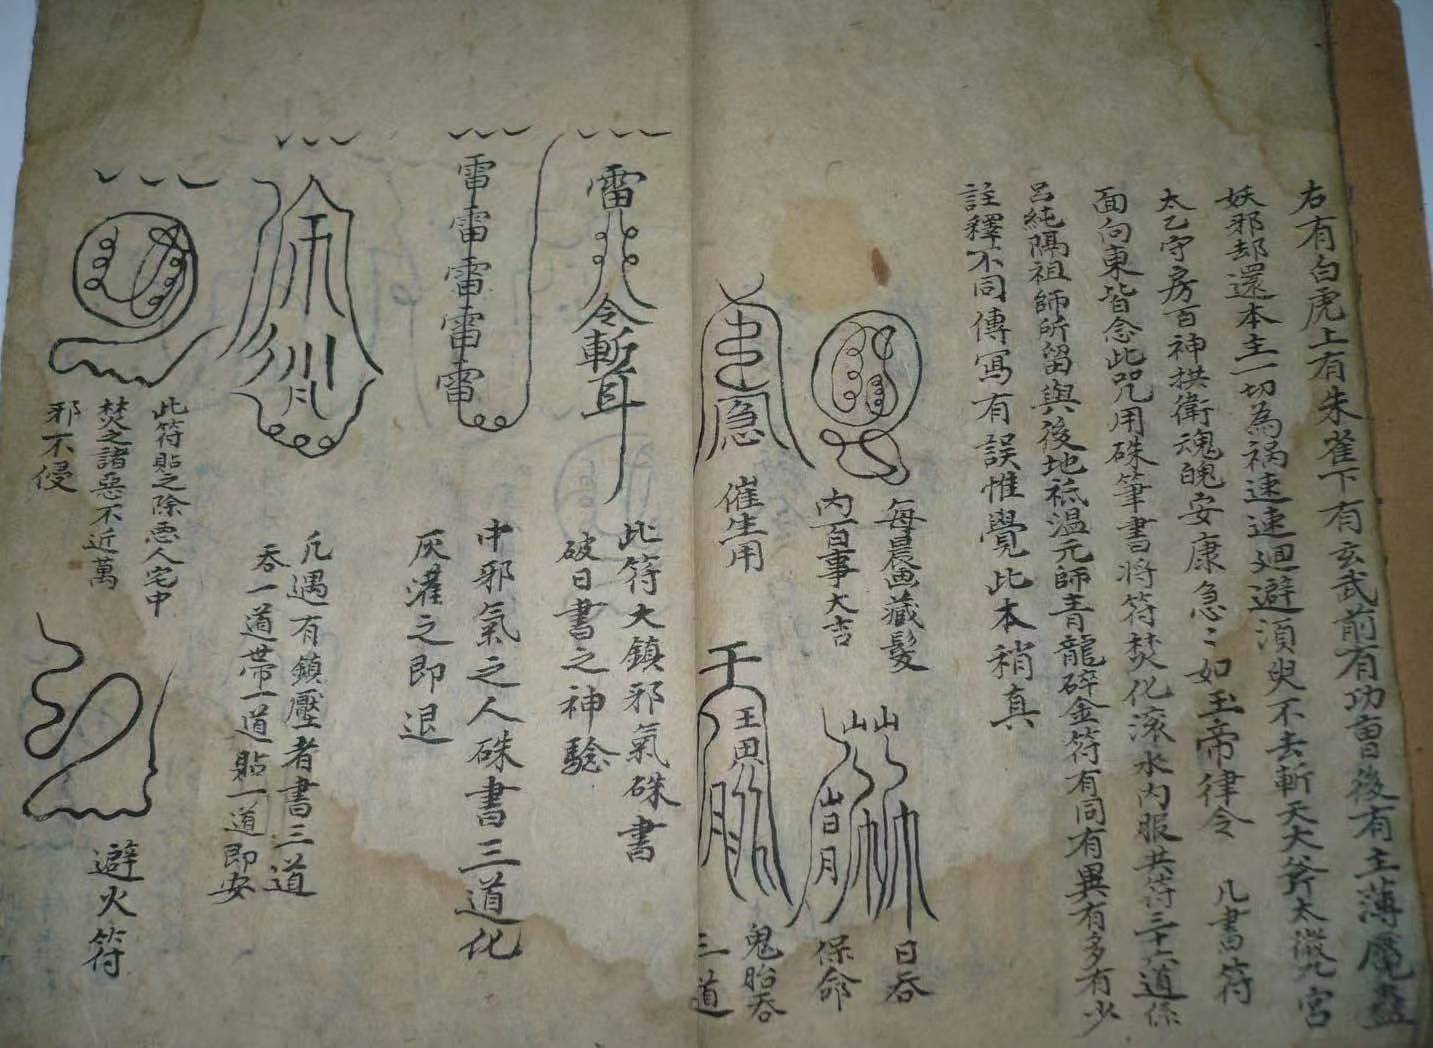 右有白虎上有朱雀下有玄武前有功曹後有主薄魘蠱
妖邪却還本主一切為禍速速廻避湏臾不去斬天大斧太微九宮
太乙守房百神拱衛魂魄安康急〻如玉帝律令　凡書符
面向東皆念此咒用硃筆書將符焚化滚水内服共符三十六道係
吕純陽祖師所留與後地祗温元師青龍碎金符有同有異有多有少
註釋不同傳寫有誤惟覺此本稍真
每晨画藏髮
内百事大吉
日吞
保命
急
催生用
鬼胎吞
三道
雷
令斬耳
此符大鎮邪氣硃書
破日書之神驗
雷雷雷雷雷
中邪氣之人硃書三道化
灰灌之即退
凡遇有鎮壓者書三道
吞一道带一道貼一道即安
此符貼之除惡人宅中
焚之諸惡不近萬
邪不侵
避火符